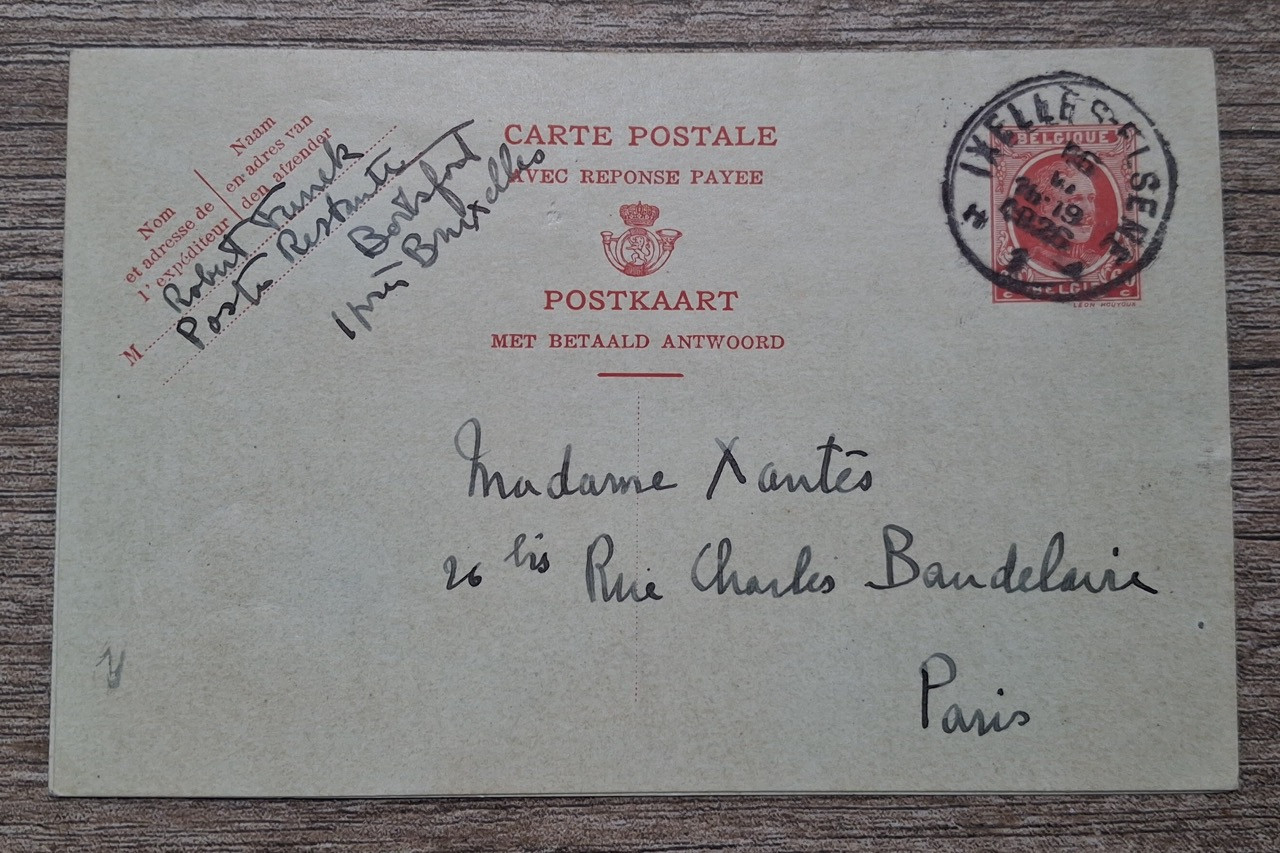 Naam
en adres van
den afzender
Nom
et adresse de
l'expéditeur
M Robert
Poste Restante
Boitsfort
près Bruxelles
CARTE POSTALE
AVEC REPONSE PAYEE
POSTKAART
MET BETAALD ANTWOORD
IXELLES-ELSENE
BELGIQUE
BELGIE
LÉON HOUYOUX
Madame Xantès
26 bis Rue Charles Baudelaire
Paris